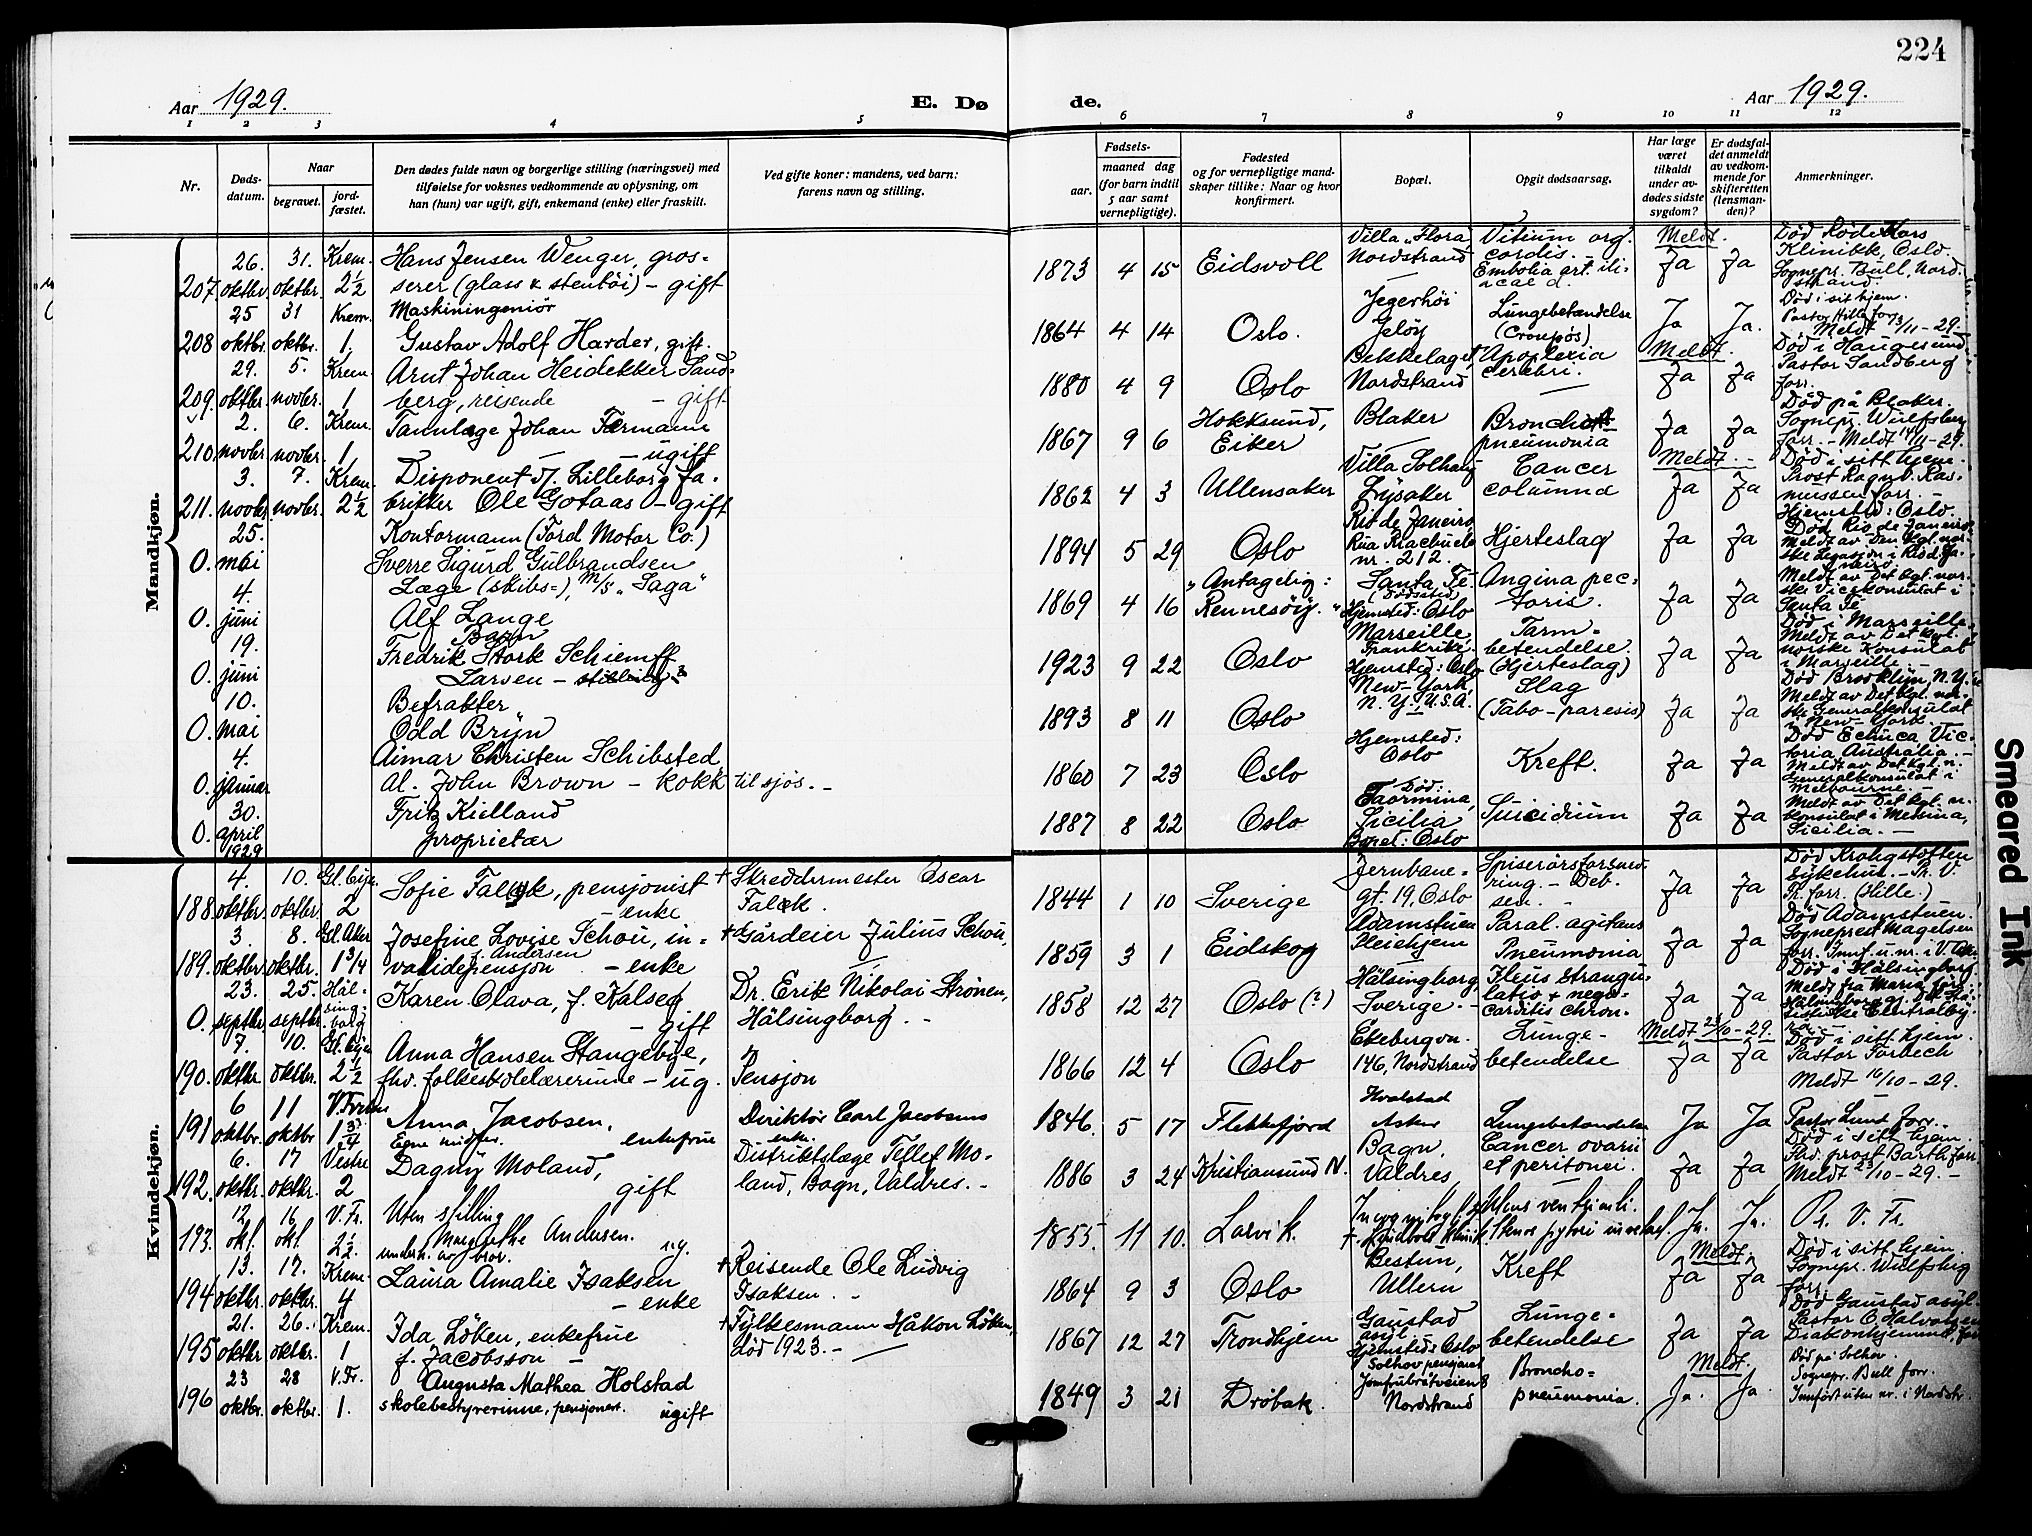 224
Aar 1929.
E. Dø
de.
Aar 1929.
1 2 3 4 5 6 7 8 9 10 11 12
Nr.
Døds-
datum.
Naar
begravet.
jord-
fæstet.
Den dødes fulde navn og borgerlige stilling (næringsvei) med
tilføielse for voksnes vedkommende av oplysning, om
han (hun) var ugift, gift, enkemand (enke) eller fraskilt.
Ved gifte koner: mandens, ved barn:
farens navn og stilling.
Fødsels-
aar.
maaned dag
(for barn indtil
5 aar samt
vernepligtige).
Fødested
og for vernepligtige mand-
skaper tillike: Naar og hvor
konfirmert.
Bopæl.
Opgit dødsaarsag.
Har læge
været
tilkaldt
under av-
dødes sidste
sygdom?
Er dødsfal-
det anmeldt
av vedkom-
mende for
skifteretten
(lensman-
den)?
Anmerkninger.
Mandkjøn.
207 26. oktbr. 31. oktbr. Krem. 2½
Hans Jensen Wenger, gros=
serer (glass & stentøi) – gift
1873 4 15 Eidsvoll
Villa "Flora"
Nordstrand
Vitium org.
cordis. –
Embolia art. ili-
acae d.
Meldt.
Ja Ja
Død Røde Kors
Klinikk, Oslo.
Sognepr. Bull, Nord-
strand.
208 25 oktbr. 31 oktbr. Krem. 1.
Maskiningeniør
Gustav Adolf Harder, gift.
1864 4 14 Oslo.
Jegerhøi
Jeløy
Lungebetændelse
(Croupøs)
Ja Ja.
Død i sit hjem.
Pastor Hille forr.
Meldt /11-29.
209. 29. oktbr. 5. novbr. Krem. 1
Arnt Johan Heidekker Sand=
berg, reisende – gift
1880 4 9 Oslo
Bekkelaget,
Nordstrand
Apoplexia
cerebri.
Meldt.
Ja Ja
Død i Haugesund
Pastor Sandberg
forr.
210. 2. novbr. 6. novbr. Krem. 1
Tannlæge Johan Færmann
– ugift
1867 9 6 Hokksund,
Eiker
Blaker
pneumonia
Ja Ja
Død på Blaker.
Sognepr. Wulfsberg
forr. – Meldt 14/11-29.
211. 3. novbr. 7. novbr. Krem. 2½
Disponent v/. Lilleborg Fa-
brikker Ole Gotaas – gift
1862 4 3 Ullensaker
Villa Solhaug
Lysaker
Cancer
columna
Meldt. –
Ja Ja
Død i sitt hjem.
Prost Ragnv. Ras-
mussen forr. –
Hjemsted: Oslo.
0. 25. mai
Kontormann (Ford Motor Co.)
Sverre Sigurd Gulbrandsen
1894 5 29 Oslo
Rio de Janeiro
Rua
nr. 212.
Hjerteslag
Ja Ja
Død Rio de Janeiro
Meldt av Den kgl. nor-
ske Legasjon i Rio d. Ja-
neiro.
0. 4. juni
Læge (skibs=), M/S "Saga"
Alf Lange
1869 4 16 "Antagelig:
Rennesöy."
Santa Fé
(dødssted)
Hjemsted: Oslo
Angina pec=
toris.
Ja Ja
Meldt av Det kgl. nor-
ske Vicekonsulat i
Santa Fé
0. 19. juni
Barn
Fredrik Stork Schiemff
Larsen – stilling?
1923 9 22 Oslo
Marseille,
Frankrike.
Hjemsted: Oslo
Tarm=
betendelse.
(Hjerteslag)
Ja Ja
Død i Marseille.
Meldt av Det kgl.
norske Konsulat
i Marseille. –
0. 10. mai
Befrakter
Odd Bryn
1893 8 11 Oslo
New-York,
N. Y., U.S.A.
Slag
(Tabo-paresis)
Ja Ja
Død Brooklyn, N. Y.
Meldt av Det kgl. nor-
ske Generalkonsulat
i New-York. –
0. 4. januar
Aimar Christen Schibsted,
al. John Brown – kokk til sjøs. –
1860 7 23 Oslo
Hjemsted:
Oslo
Kreft.
Ja Ja
Død Echuca Vic=
toria, Australia. –
Meldt av Det kgl. n.
Generalkonsulat i
Melbourne. –
0. 30. april 1929
Fritz Kielland
proprietær
1887 8 22 Oslo
Død:
Taormina,
Sicilia
Bopel: Oslo
Suicidium
Ja Ja
Meldt av Det kgl. n.
Konsulat i Messina,
Sicilia. –
Kvindekjøn.
188. 4. oktbr. 10. oktbr. Gl. 2
Sofie Falck, pensjonist
– enke
+ Skreddermester Oscar
Falck.
1844 1 10 Sverige
Jernbane=
gt. 19, Oslo
Ja Ja
Død Krohgstøtten
sykehus. – Pr. V.
Fr. forr. (Hille.)
189. 3. oktbr. 8. oktbr. Gl. Aker 1¾
Josefine Lovise Schou, in=
f. Andersen
validepensjon – enke
+ Gårdeier Julius Schou,
1859 3 1 Eidskog
Adamstuen
Pleiehjem
Paral. agitans
Pneumonia
Ja Ja
Død Adamstuen.
Sogneprest Magelsen
forr. Innf. u. nr. i V. Aker
0. 23. septbr. 25. septbr. Häl=
sing-
borg
Karen Olava, f. Kalseg
– gift
Dr. Erik Nikolai Strönen,
Hälsingborg. –
1858 12 27 Oslo (?)
Hälsingborg,
Sverige –
Ileus strangu=
latio +
carditis chron.
Ja Ja
Død i Hälsingborg.
Meldt fra Maria förs.
190. 7. oktbr. 10. oktbr. Gl. 2½
Anna Hansen Stangebye,
fhv. folkeskolelærerinne – ug.
Pensjon
1866 12 4 Oslo
Ekebergvn.
146, Nordstrand
Lunge-
betendelse
Meldt /10-29.
Ja Ja
Død i sitt hjem.
Pastor Torbech
Meldt 16/10-29.
191 6 oktbr. 11 oktbr V. Frem 1¾
Anna Jacobsen,
Egne midler. enkefrue
Direktör Carl Jacobsens
enke.
1846 5 17 Flekkefjord
Hvalstad
Asker
Lungebetændelse
Ja Ja
Pastor Lunt forr.
192. 6. oktbr. 17 oktbr. Vestre 2
Dagny Moland,
gift
Distriktslæge Tellef Mo=
land, Bagn, Valdres. –
1886 3 24 Kristiansund N.
Bagn,
Valdres
Cancer ovarii
et peritonei.
Ja Ja
Død i sitt hjem.
prost Barth forr.
Meldt 23/10-29. –
193. 12 okt. 16 okt V. Fr. 2½.
Uten stilling
Margrethe Andersen.
underh. av bror. ug.
1855. 11 10. Larvik.
Ulcus ventriculi.
Ja. Ja.
Pr. V. Fr.
194 13. oktbr. 17. oktbr. Krem. 4
Laura Amalie Isaksen
– enke
+ Reisende Ole Ludvig
Isaksen. –
1864 9 3 Oslo
Bestum,
Ullern
Kreft
Meldt.
Ja Ja
Død i sitt hjem.
Sognepr. Wulfsberg
forr.
195 21. oktbr. 26. oktbr. Krem. 1
Ida Løken, enkefrue
f. Jacobsson –
+ Fylkesmann Håkon Løken,
død 1923. –
1867 12 27 Trondhjem
Gaustad
asyl.
Hjemsted: Oslo
Lunge=
betendelse
Ja Ja
Død Gaustad asyl.
Pastor O. Halvorsen
Diakonhjemmet, forr.
196 23 oktbr. 28 oktbr. V. Fr. 1.
Augusta Mathea Holstad
skolebestyrerinne, pensjonert. ugift
1849 3 21 Drøbak.
Solhov pensjonat
Jomfrubråtveien 8
Nordstrand
Broncho=
pneumonia.
Meldt.
Ja. Ja.
Død på Solhov.
Sognepr. Bull forr.
Innført uten nr. i Nordstr.
Smeared Ink